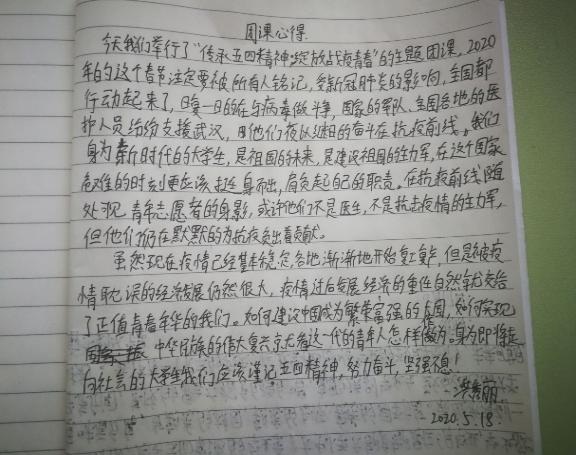 团课心得
今天我们举行了"传承五四精神绽放战疫青春"的主题团课,2020
年的这个春节注定要被所有人铭记,受新冠肺炎的影响,全国都
行动起来了,日复一日的在与病毒做斗争,国家的军队、全国各地的医
护人员纷纷支援武汉,他们夜以继日的奋斗在抗疫前线。我们
身为新时代的大学生,是祖国的未来,是建设祖国的主力军,在这个国家
危难的时刻更应该挺身而出,肩负起自己的职责。在抗疫前线随
处现青年志愿者的身影,或许他们不是医生,不是抗击疫情的主力军,
但他们仍在默默的为抗疫负出着贡献。
虽然现在疫情已经基本稳定,各地渐渐地开始复工复产,但是被疫
情耽误的经济发展仍然很大,疫情过后发展经济的重任自然就交给
了正值青春年华的我们。如何建设中国成为繁荣富强的大国,如何实现
中华民族的伟大复兴京在着这一代的青年人怎样做为。身为即将走
向社会的大学生我们应该谨记五四精神,努力奋斗,坚强不息!
2020.5.18.